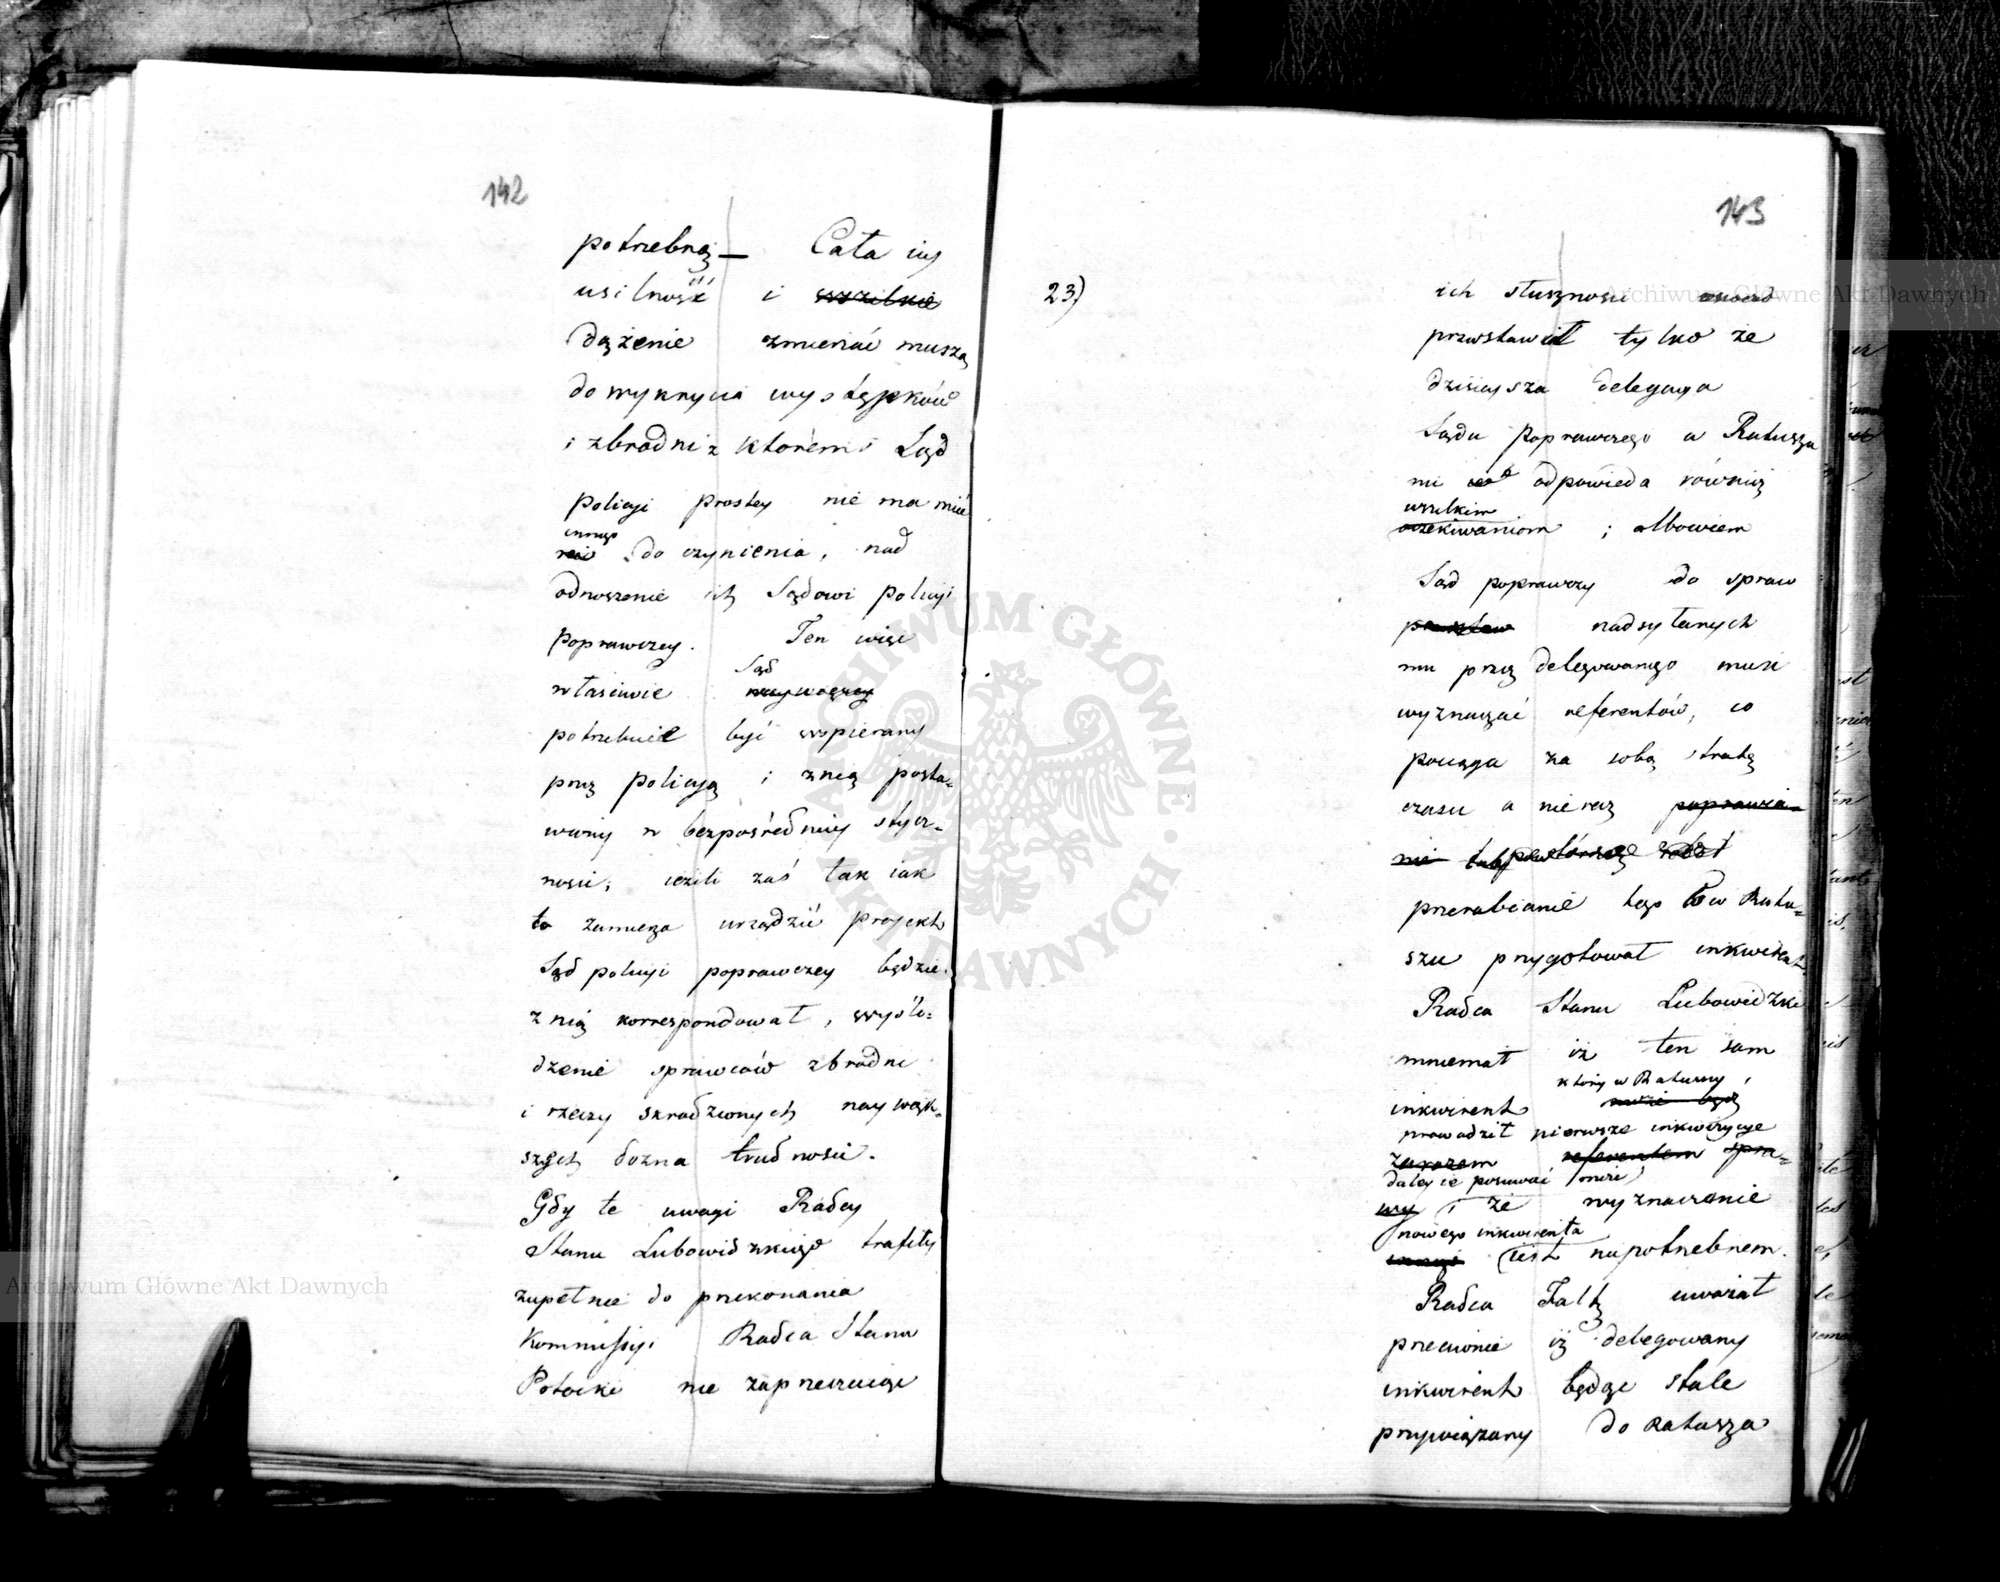 142
potrzebną — Cała iey
usilność i wszelkie
dążenie zmierzać muszą
do wykrycia występków
i zbrodni z ktoremi Sąd
policyi prostey nie ma mieć
innego
nic do czynienia, nad
odnoszenie ich Sądowi policyi
poprawczey. Ten więc
Sąd
właściwie
potrzebuie być wspierany
przez policyą i z nią posta-
wiony w bezpośredniey stycz-
ności; ieżeli zaś tak iak
to zamierza urządzić projekt
Sąd policyi poprawczey będzie
z nią korrespondował, wyśle-
dzenie sprawców zbrodni
i rzeczy skradzionych naywięk-
szych dozna trudności.
Gdy te uwagi Radcy
Stanu Lubowidzkiego trafiły
zupełnie do przekonania
Kommissyi Radca Stanu
Potocki nie zaprzeczaiąc
143
23)
ich słuszności
przedstawił tylko że
dzisieysza delegacya
Sądu poprawczego w Ratuszu
nie odpowiada również
wszelkim
oczekiwaniom ; albowiem
Sąd poprawczy do spraw
nadsyłanych
mu przez delegowanego musi
wyznaczać referentów, co
pociąga za sobą stratę
czasu a nieraz poprawia-
nie lub powtórzenie
przerabianie tego co w Ratu-
szu przygotował inkwirent
Radca Stanu Lubowidzki
mniemał iż ten sam
który w Ratuszu
inkwirent może być
prowadził pierwsze inkwizycye
zarazem referentem spra-
daley ie posuwać może
wy i że wyznaczenie
nowego inkwirenta
innego iest niepotrzebnem.
Radca Faltz uważał
przeciwnie iż delegowany
inkwirent będąc stale
przywiązany do Ratusza
Archiwum Główne Akt Dawnych
Archiwum Główne Akt Dawnych
ARCHIWUM GŁÓWNE AKT DAWNYCH